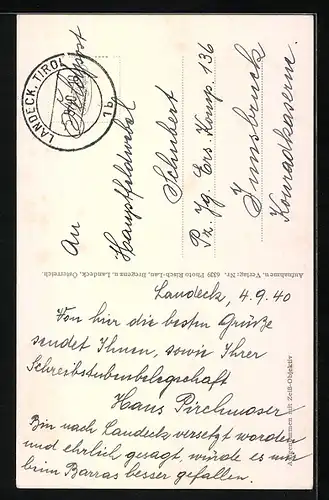 LANDECK, TIROL
Feldpost
An
Hauptfeldwebel
Schubert
Pz. Jg. Ers. Komp. 136
Innsbruck
Konradkaserne.
Aufnahme u. Verlag: Nr. 6339 Photo Risch-Lau, Bregenz u. Landeck, Österreich.
Landeck, 4.9.40
Von hier die besten Grüße
sendet Ihnen, sowie Ihrer
Schreibstubenbelegschaft
Hans Pirchmoser
Bin nach Landeck versetzt worden
und ehrlich gesagt, würde es mir
beim Barras besser gefallen.
Aufgenommen mit Zeiß-Objektiv